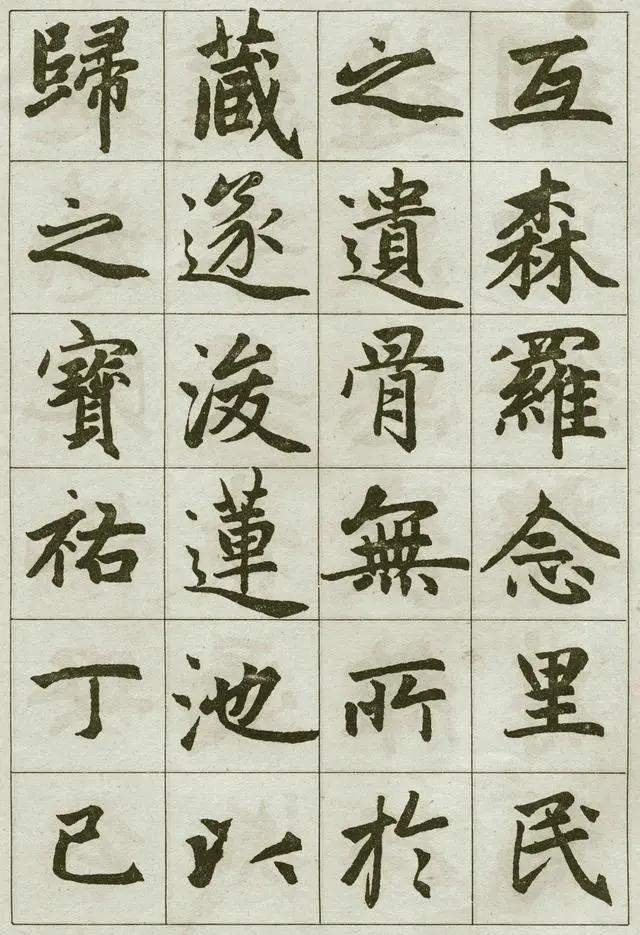 互森羅念里民
之遺骨無所於
藏遂浚蓮池以
歸之寶祐丁已